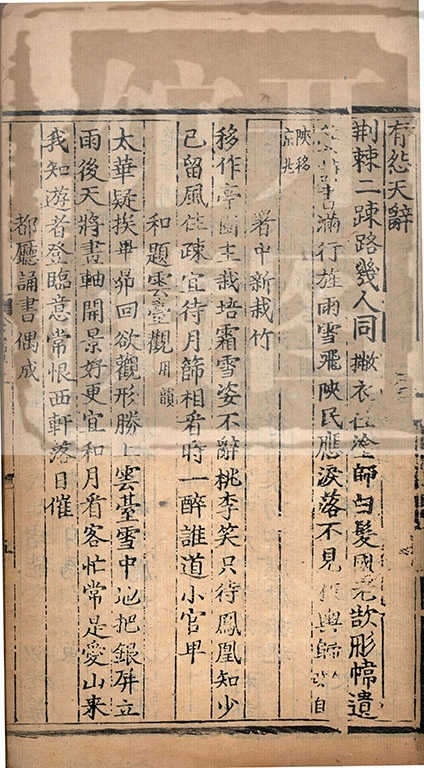 有怨天辭
荆棘二踈路幾人同
師白髮國
形幃遺
滿行旌雨雪飛陝民應淚落不見
自
陝移
京兆
署中新栽竹
移作亭園主栽培霜雪姿不辭桃李笑只待鳳凰知少
已留風住疎宜待月篩相看時一醉誰道小官卑
和題雲臺觀用韻
太華疑挨畢昴回欲觀形勝上雲臺雪中池把銀屏立
雨後天將畫軸開景好更宜和月看客忙常是愛山來
我知遊者登臨意常恨西軒落日催
都廳誦書偶成